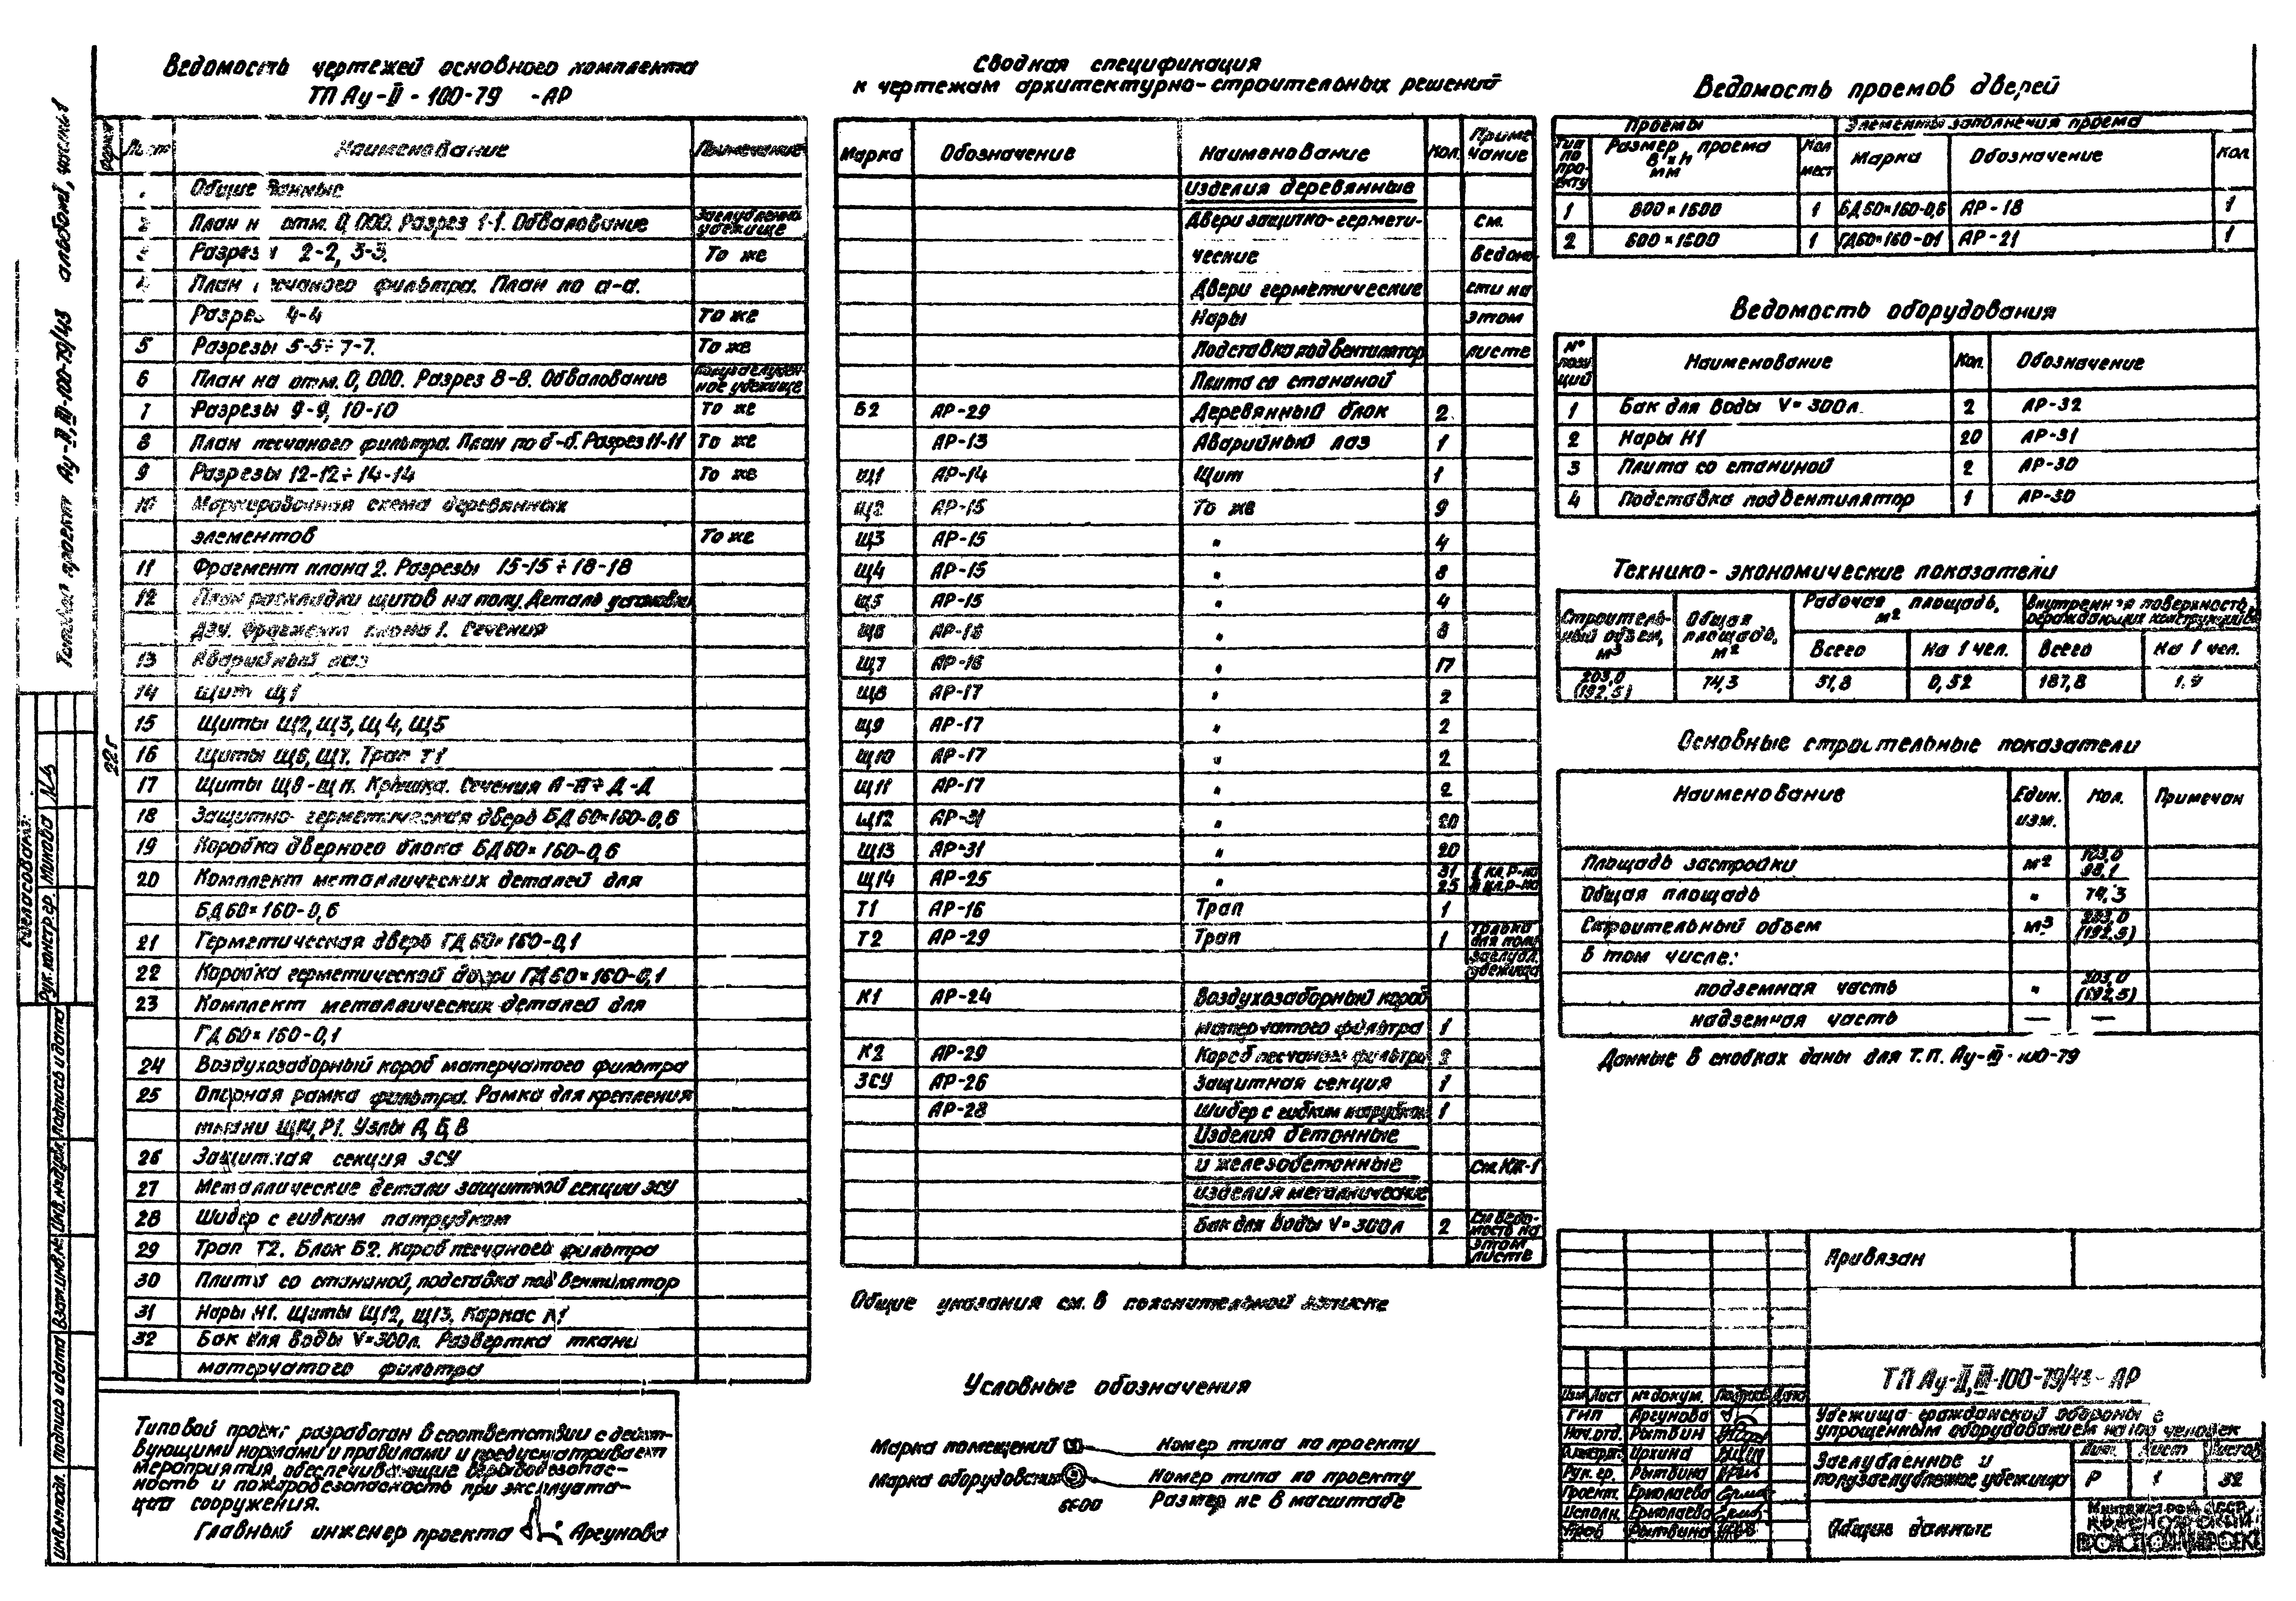 Типовой проект Ау-II,III-100-79/43 альбом I, часть 1
Ведомость чертежей основного комплекта
ТП Ау-II-100-79 -АР
Лист Наименование Примечание
Общие данные
2 План на отм. 0,000. Разрез 1-1. Обвалование
убежище
Разрезы 2-2, 3-3. То же
План песчаного фильтра. План по а-а.
Разрез 4-4 То же
5 Разрезы 5-5÷7-7. То же
6 План на отм. 0,000. Разрез 8-8. Обвалование Полузаглублен-
ное убежище
7 Разрезы 9-9, 10-10 То же
8 План песчаного фильтра. План по б-б. Разрез 11-11 То же
9 Разрезы 12-12÷14-14 То же
10 Маркировочная схема деревянных
элементов То же
11 Фрагмент плана 2. Разрезы 15-15÷18-18
12 План раскладки щитов на полу. Деталь установки
ДЗУ. Фрагмент плана 1. Сечения
13 Аварийный лаз
14 Щит Щ1
15 Щиты Щ2, Щ3, Щ4, Щ5
16 Щиты Щ6, Щ7. Трап Т1
17 Щиты Щ8-Щ11. Крышка. Сечения А-А÷Д-Д
18 Защитно-герметическая дверь БД60×160-0,6
19 Коробка дверного блока БД60×160-0,6
20 Комплект металлических деталей для
БД60×160-0,6
21 Герметическая дверь ГД60×160-0,1
22 Коробка герметической двери ГД60×160-0,1
23 Комплект металлических деталей для
ГД60×160-0,1
24 Воздухозаборный короб матерчатого фильтра
25 Опорная рамка фильтра. Рамка для крепления
ткани Щ14, Р1. Узлы А, Б, В
26 Защитная секция ЗСУ
27 Металлические детали защитной секции ЗСУ
28 Шибер с гибким патрубком
29 Трап Т2. Блок Б2. Короб песчаного фильтра
30 Плита со станиной, подставка под вентилятор
31 Нары Н1. Щиты Щ12, Щ13. Каркас К1
32 Бак для воды V=300л. Развертка ткани
матерчатого фильтра
Типовой проект разработан в соответствии с дейст-
вующими нормами и правилами и предусматривает
мероприятия, обеспечивающие взрывобезопас-
ность и пожаробезопасность при эксплуата-
ции сооружения.
Главный инженер проекта Аргунова
Сводная спецификация
к чертежам архитектурно-строительных решений
Марка Обозначение Наименование Кол. Приме
чание
Изделия деревянные
Двери защитно-гермети- см.
ческие ведомо
Двери герметические сти на
Нары этом
Подставка под вентилятор листе
Плита со станиной
Б2 АР-29 Деревянный блок 2
АР-13 Аварийный лаз 1
Щ1 АР-14 Щит 1
Щ2 АР-15 То же 9
Щ3 АР-15 " 4
Щ4 АР-15 " 8
Щ5 АР-15 " 4
Щ6 АР-16 " 8
Щ7 АР-16 " 17
Щ8 АР-17 " 2
Щ9 АР-17 " 2
Щ10 АР-17 " 2
Щ11 АР-17 " 2
Щ12 АР-31 " 20
Щ13 АР-31 " 20
Щ14 АР-25 " 31
25
Т1 АР-16 Трап 1
Т2 АР-29 Трап 1 Только
для полу
заглубл.
убежища
К1 АР-24 Воздухозаборный короб
матерчатого фильтра 1
К2 АР-29 Короб песчаного фильтра 2
ЗСУ АР-26 Защитная секция 1
АР-28 Шибер с гибким патрубком 1
Изделия бетонные
и железобетонные См. КЖ-1
Изделия металлические
Бак для воды V=300л 2 См. ведо-
мость на
этом
листе
Общие указания см. в пояснительной записке
Условные обозначения
Марка помещений Номер типа по проекту
Марка оборудования Номер типа по проекту
6600 Размер не в масштабе
Ведомость проемов дверей
Проемы Элементы заполнения проема
Тип по про-екту Размер проема в×h мм Кол мест Марка Обозначение Кол
1 600×1600 1 БД60×160-0,6 АР-18 1
2 600×1600 1 ГД60×160-01 АР-21 1
Ведомость оборудования
№ позиций Наименование Кол. Обозначение
1 Бак для воды V=300л. 2 АР-32
2 Нары Н1 20 АР-31
3 Плита со станиной 2 АР-30
4 Подставка под вентилятор 1 АР-30
Технико-экономические показатели
Строитель-ный объем, м³ Общая площадь, м² Рабочая площадь, м² Внутренняя поверхность ограждающих конструкций
Всего На 1 чел. Всего На 1 чел.
203,0
(192,5) 74,3 51,8 0,52 187,8
Основные строительные показатели
Наименование Един. изм. Кол. Примечан
Площадь застройки м² 103,0
98,1
Общая площадь " 74,3
Строительный объем м³ 203,0
(192,5)
В том числе:
подземная часть " 203,0
(192,5)
надземная часть — —
Данные в скобках даны для Т.П. Ау-III-100-79
Привязан
ТП Ау-II,III-100-79/43-АР
Изм Лист № докум. Подпись Дата
ГИП Аргунова
Нач.отд. Рытвин
Рук.гр. Рытвина
Проект. Ермолаева
Исполн. Ермолаева
Пров Рытвина
Убежища гражданской обороны с
упрощенным оборудованием на 100 человек
Заглубленное и
полузаглубленное убежища
Лит. Лист Листов
Р 1 32
Общие данные
КРАСНОЯРСКИЙ
ПРОМСТРОЙНИИПРОЕКТ
Согласовано:
Рук. констр.гр. Минова
Инв.№подл. Подпись и дата Взам.инв.№ Инв.№дубл. Подпись и дата
22г